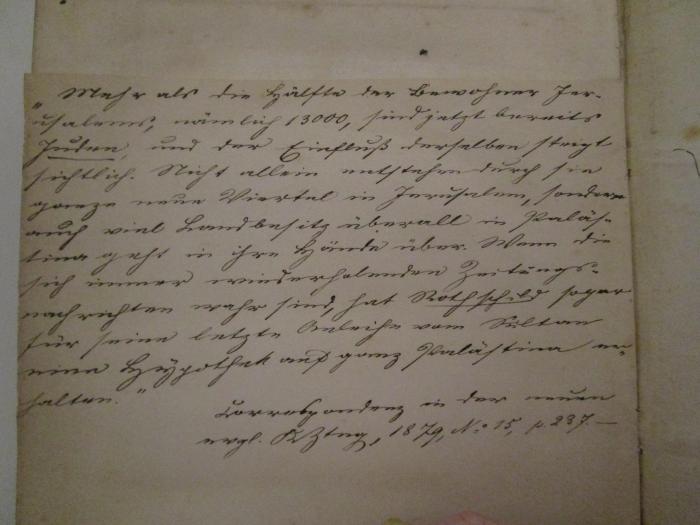 „Mehr als die Hälfte der Bewohner Jer-
usalems, nämlich 13000, sind jetzt bereits
Juden, und der Einfluß derselben steigt
sichtlich. Nicht allein entstehen durch sie
ganze neue Viertel in Jerusalem, sondern
auch viel Landbesitz überall in Paläs-
tina geht in ihre Hände über. Wenn die
sich immer wiederholenden Zeitungs-
nachrichten wahr sind, hat Rothschild sogar
für seine letzte Anleihe vom Sultan
eine Hypothek auf ganz Palästina er-
halten."
Correspondenz in der neuen
evgl. KZtng, 1879, No 15, p. 237.—